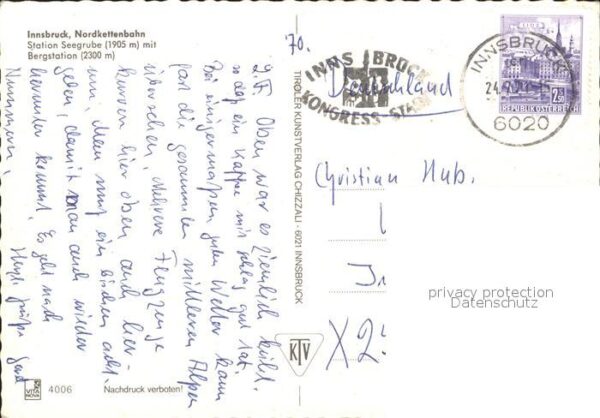 Innsbruck, Nordkettenbahn
Station Seegrube (1905 m) mit
Bergstation (2300 m)
L.F. Oben war es ziemlich kühl.
so daß ein
Bei einigermaßen gutem Wetter kann
fast die gesamten mittleren Alpen
übersehen. Mehrere Flugzeuge
kurven hier oben auch her-
um. Man muß ein bißchen acht
geben, damit man auch wieder
herunter kommt. Es geht nach
Herzl. Grüße Gerd
70.
INNSBRUCK
KONGRESS-STADT
Deutschland
INNSBRUCK
6020
2.50
REPUBLIK ÖSTERREICH
TIROLER KUNSTVERLAG CHIZZALI · 6021 INNSBRUCK
Christian Hub.
X2
privacy protection
Datenschutz
KTV
VITA NOVA
4006
Nachdruck verboten!